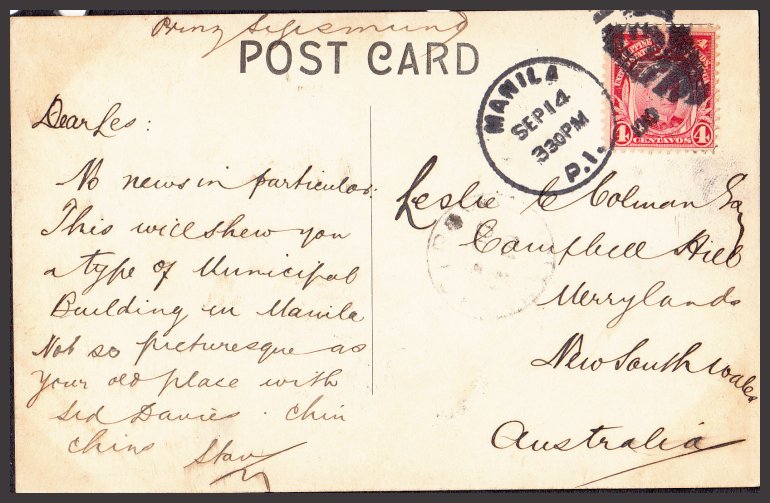 Prinz Sigismund
POST CARD
MANILA
SEP 14
330PM
P.I.
4 4
CENTAVOS
Dear Les:
No news in particular.
This will shew you
a type of Municipal
Building in Manila
Not so picturesque as
your old place with
Sid Davies. Chin
Chins Stan
Leslie C Colman Esq
Campbell Hill
Merrylands
New South Wales
Australia